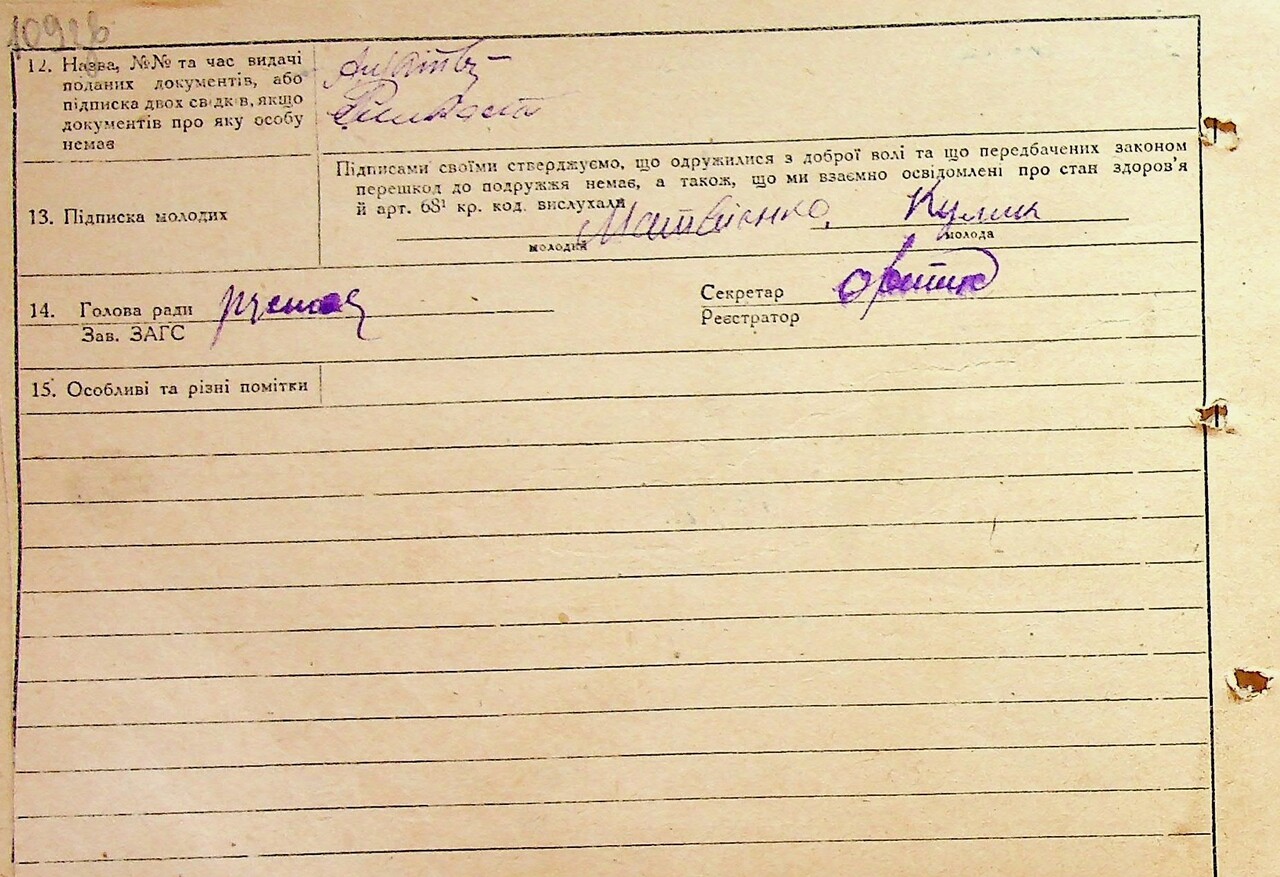 109зв
12. Назва, №№ та час видачі
поданих документів, або
підписка двох свідків, якщо
документів про яку особу
немає
Підписами своїми стверджуємо, що одружилися з доброї волі та що передбачених законом
перешкод до подружжя немає, а також, що ми взаємно освідомлені про стан здоров'я
й арт. 68¹ кр. код. вислухали
13. Підписка молодих
Матвієнко Кулик
молодий молода
14. Голова ради
Зав. ЗАГС
Секретар
Реєстратор
15. Особливі та різні помітки